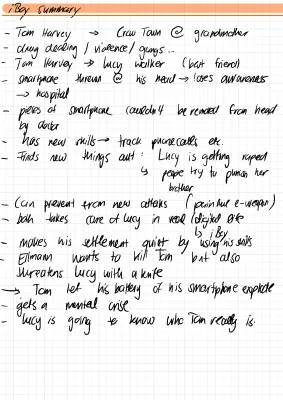 iBoy summary
- Tom Harvey → Crow Town @ grandmother
- drug dealing / violence / gangs ...
- Tom Harvey → Lucy Walker (best friend)
- smartphone thrown @ his head → loses awareness
→ hospital
- pieces of smartphone couldn't be removed from head
by doctor
- has new skills → track phonecalls etc.
- Finds new things out: Lucy is getting raped
↳ people try to punish her
brother
- Can prevent from new attaks (powerful e-weapon)
- both takes care of Lucy in real / digital life
↳ iBoy
- makes his settlement quiet by using his skills
- Ellmann wants to kill Tom but also
threatens Lucy with a knife
→ Tom let his battery of his smartphone explode
- gets a mental crise
- Lucy is going to know who Tom really is.